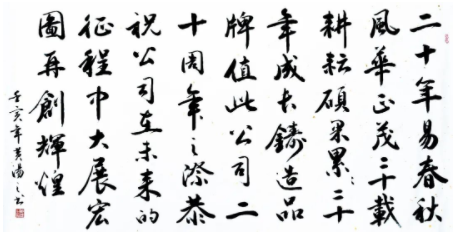 二十年易春秋
風華正茂二十載
耕耘碩果累々二十
年成长鑄造品
牌值此公司二
十周年之際恭
祝公司在未来的
征程中大展宏
圖再創輝煌